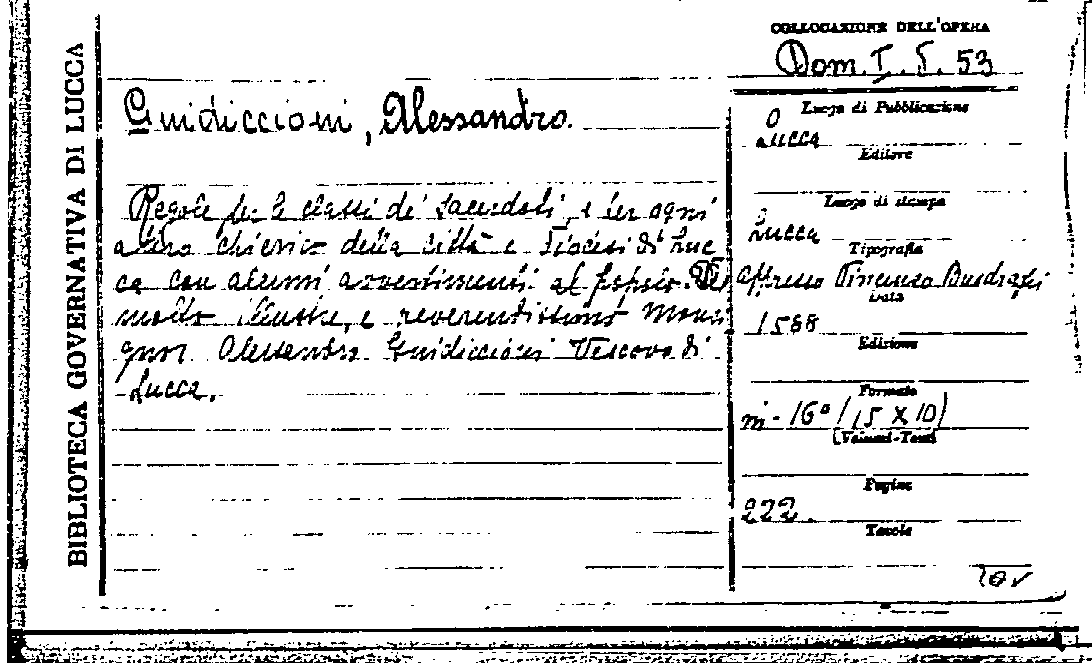 BIBLIOTECA GOVERNATIVA DI LUCCA
COLLOCAZIONE DELL'OPERA
Dom. I. 5. 53
Guidiccioni, Alessandro.
Regole per le classi de' Sacerdoti, e per ogni
altro chierico della città e Diocesi di Luc
ca con alcuni avvertimenti al popolo. Di
molto illustre, e reverendissimo Monsi
gnor Alessandro Guidiccioni Vescovo di
Lucca.
Luogo di Pubblicazione
Lucca
Editore
Luogo di stampa
Lucca
Tipografia
appresso Vincenzo Busdraghi
Data
1588
Edizione
Formato
in-16° (15 X 10)
(Volumi-Tomi)
Pagine
222.
Tavole